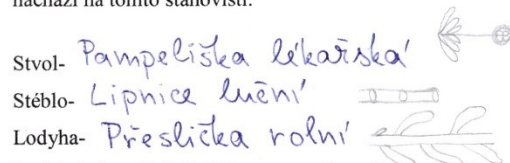 nachází na tomto stanovišti:
Stvol- Pampeliška lékařská
Stéblo- Lipnice luční
Lodyha- Přeslička rolní